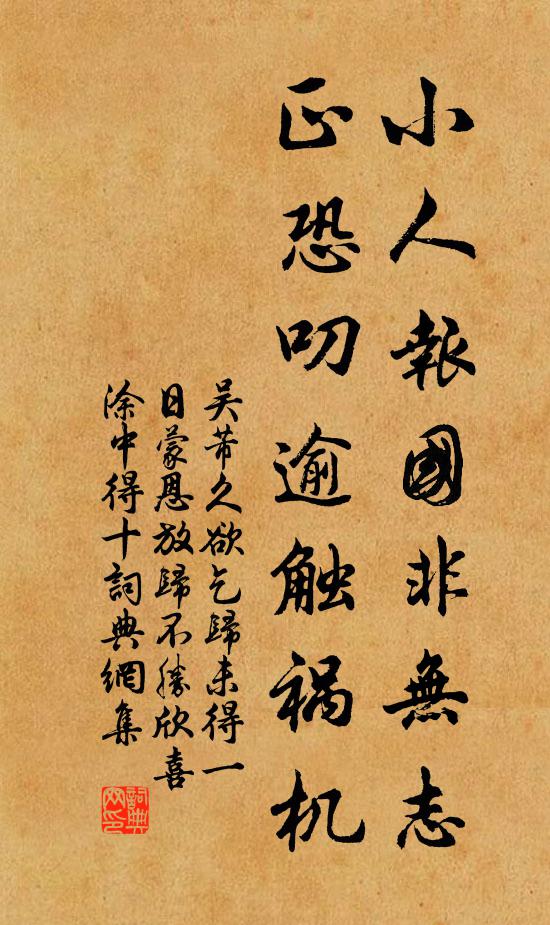 小人報國非無志
正恐叨逾触祸机
吴芾久欲乞歸未得一
日蒙恩放歸不勝欣喜
涂中得十詞典網集
詞典網印